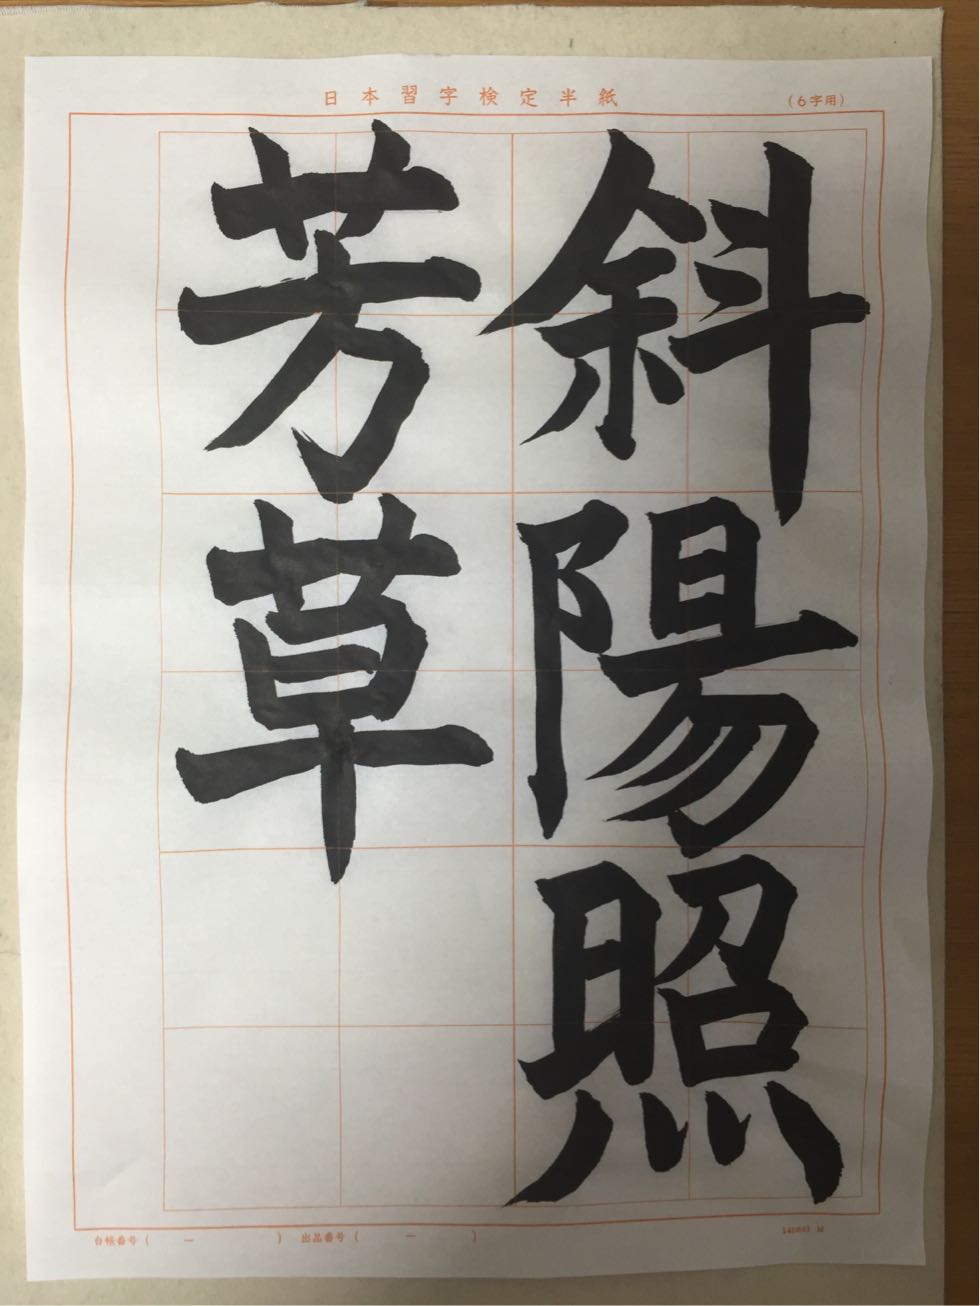 日本習字検定半紙
（6字用）
斜陽照
芳草
台帳番号（　－　）　出品番号（　－　）